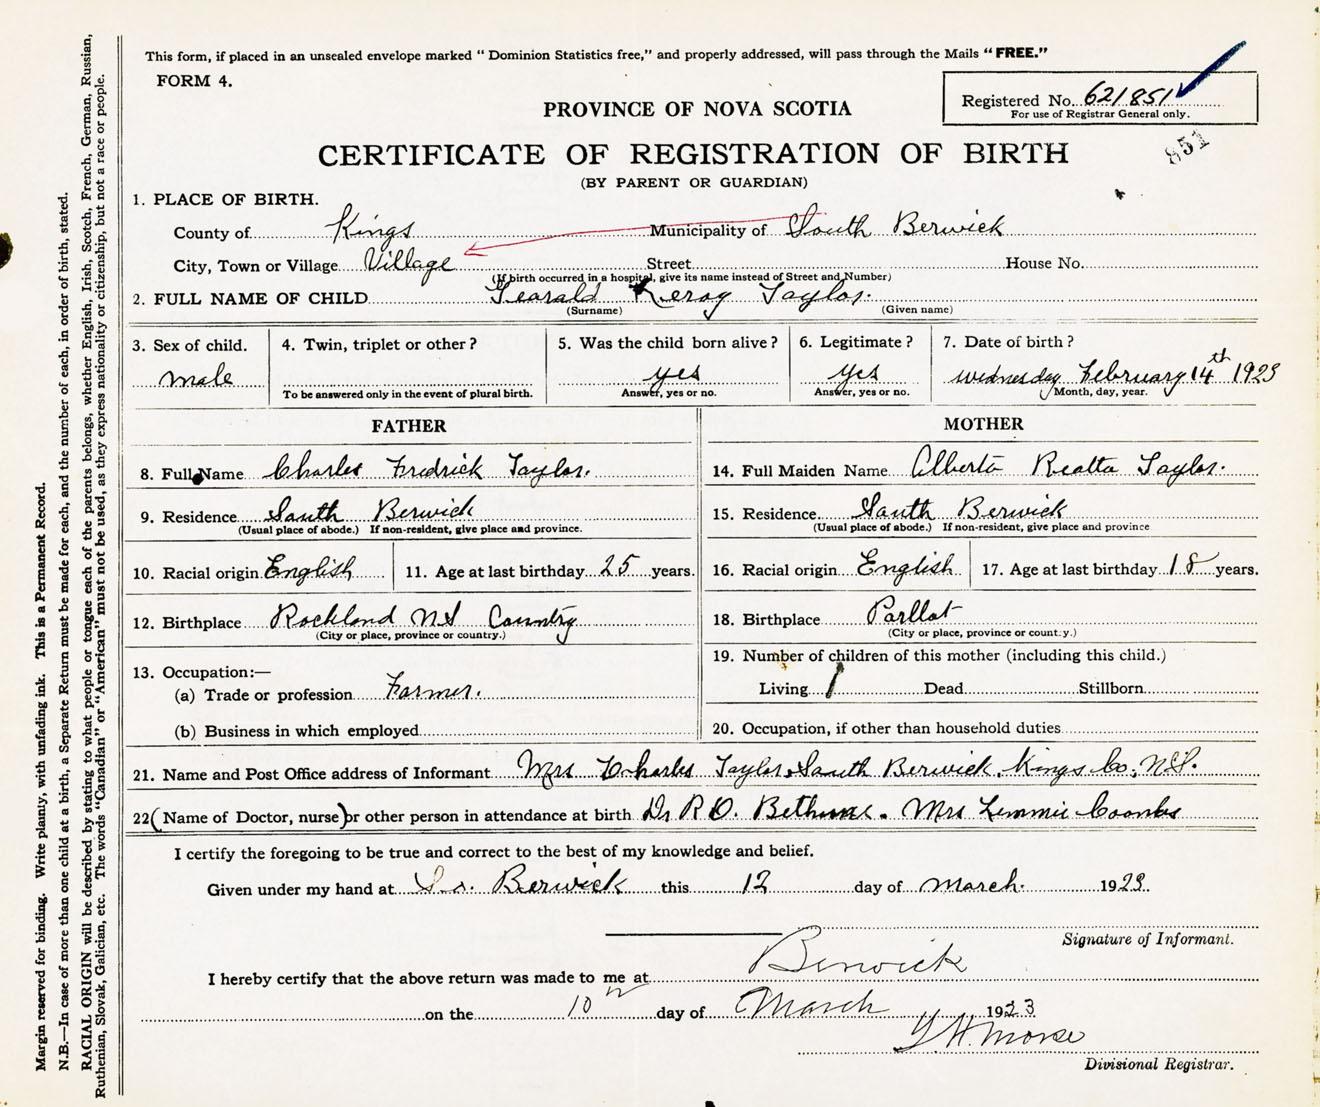 This form, if placed in an unsealed envelope marked "Dominion Statistics free," and properly addressed, will pass through the Mails "FREE."
FORM 4.
Registered No. 621851
For use of Registrar General only.
851
PROVINCE OF NOVA SCOTIA
CERTIFICATE OF REGISTRATION OF BIRTH
(BY PARENT OR GUARDIAN)
1. PLACE OF BIRTH.
County of Kings Municipality of South Berwick
City, Town or Village Village Street House No.
(If birth occurred in a hospital, give its name instead of Street and Number)
2. FULL NAME OF CHILD Gearald Leroy Taylor.
(Surname) (Given name)
3. Sex of child. 4. Twin, triplet or other? 5. Was the child born alive? 6. Legitimate? 7. Date of birth?
male yes yes wednesday February 14th 1923
To be answered only in the event of plural birth. Answer, yes or no. Answer, yes or no. Month, day, year.
FATHER MOTHER
8. Full Name Charles Fredrick Taylor. 14. Full Maiden Name Alberta Reatta Taylor.
9. Residence South Berwick 15. Residence South Berwick
(Usual place of abode.) If non-resident, give place and province. (Usual place of abode.) If non-resident, give place and province
10. Racial origin English 11. Age at last birthday 25 years. 16. Racial origin English 17. Age at last birthday 18 years.
12. Birthplace Rockland NS Country 18. Birthplace
(City or place, province or country.) (City or place, province or country.)
13. Occupation:— 19. Number of children of this mother (including this child.)
(a) Trade or profession Farmer. Living 1 Dead Stillborn
(b) Business in which employed 20. Occupation, if other than household duties
21. Name and Post Office address of Informant Mrs Charles Taylor, South Berwick, Kings Co, N.S.
22 (Name of Doctor, nurse) or other person in attendance at birth Dr R O. Bethune. Mrs Lemmie Coombs
I certify the foregoing to be true and correct to the best of my knowledge and belief.
Given under my hand at So. Berwick this 12 day of March. 1923.
Signature of Informant.
I hereby certify that the above return was made to me at Berwick
on the 10 day of March 1923
Morse
Divisional Registrar.
Margin reserved for binding. Write plainly, with unfading ink. This is a Permanent Record.
N.B.—In case of more than one child at a birth, a Separate Return must be made for each, and the number of each, in order of birth, stated.
RACIAL ORIGIN will be described by stating to what people or tongue each of the parents belongs, whether English, Irish, Scotch, French, German, Russian,
Ruthenian, Slovak, Galician, etc. The words "Canadian" or "American" must not be used, as they express nationality or citizenship, but not a race or people.